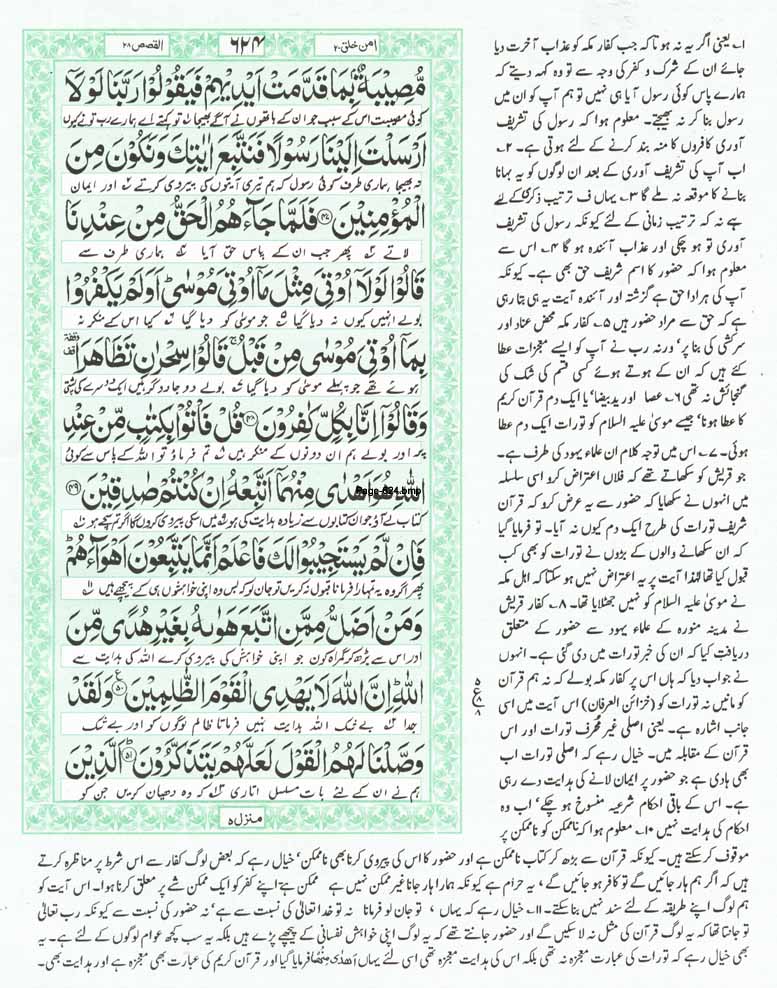 القصص ۲۸
۶۲۴
امن خلق ۲۰
مُّصِيْبَةٌۢ بِمَا قَدَّمَتْ اَيْدِيْهِمْ فَيَقُوْلُوْا رَبَّنَا لَوْلَاۤ
کوئی مصیبت اس کے سبب جو ان کے ہاتھوں نے آگے بھیجا تو کہتے اے ہمارے رب تو نے کیوں
اَرْسَلْتَ اِلَيْنَا رَسُوْلًا فَنَتَّبِعَ اٰيٰتِكَ وَنَكُوْنَ مِنَ
نہ بھیجا ہماری طرف کوئی رسول کہ ہم تیری آیتوں کی پیروی کرتے اور ایمان
الْمُؤْمِنِيْنَ ۴۷ فَلَمَّا جَآءَهُمُ الْحَقُّ مِنْ عِنْدِنَا
لاتے پھر جب ان کے پاس حق آیا ہماری طرف سے
قَالُوْا لَوْلَاۤ اُوْتِيَ مِثْلَ مَاۤ اُوْتِيَ مُوْسٰى اَوَلَمْ يَكْفُرُوْا
بولے انہیں کیوں نہ دیا گیا جو موسیٰ کو دیا گیا کیا اس کے منکر نہ
بِمَاۤ اُوْتِيَ مُوْسٰى مِنْ قَبْلُ قَالُوْا سِحْرٰنِ تَظَاهَرَا
ہوئے تھے جو پہلے موسیٰ کو دیا گیا بولے دو جادوگر ہیں ایک دوسرے کی پشتی
وَقَالُوْۤا اِنَّا بِكُلٍّ كٰفِرُوْنَ ۴۸ قُلْ فَاْتُوْا بِكِتٰبٍ مِّنْ عِنْدِ
پر اور بولے ہم ان دونوں کے منکر ہیں تم فرماؤ تو اللہ کے پاس سے کوئی
اللّٰهِ هُوَ اَهْدٰى مِنْهُمَاۤ اَتَّبِعْهُ اِنْ كُنْتُمْ صٰدِقِيْنَ ۴۹
Page-624.bmp
کتاب لے آؤ جو ان کتابوں سے زیادہ ہدایت کی ہو میں اسکی پیروی کروں گا اگر تم سچے ہو
فَاِنْ لَّمْ يَسْتَجِيْبُوْا لَكَ فَاعْلَمْ اَنَّمَا يَتَّبِعُوْنَ اَهْوَآءَهُمْ
پھر اگر وہ یہ تمہارا فرمانا قبول نہ کریں تو جان لو کہ بس وہ اپنی خواہشوں ہی کے پیچھے ہیں
وَمَنْ اَضَلُّ مِمَّنِ اتَّبَعَ هَوٰىهُ بِغَيْرِ هُدًى مِّنَ
اور اس سے بڑھ کر گمراہ کون جو اپنی خواہش کی پیروی کرے اللہ کی ہدایت سے
اللّٰهِ اِنَّ اللّٰهَ لَا يَهْدِى الْقَوْمَ الظّٰلِمِيْنَ ۵۰ وَلَقَدْ
جدا بے شک اللہ ہدایت نہیں فرماتا ظالم لوگوں کو اور بے شک
وَصَّلْنَا لَهُمُ الْقَوْلَ لَعَلَّهُمْ يَتَذَكَّرُوْنَ ۵۱ اَلَّذِيْنَ
ہم نے ان کے لئے بات مسلسل اتاری کہ وہ دھیان کریں جن کو
منزل ۵
۱۔ یعنی اگر یہ نہ ہوتا کہ جب کفار مکہ کو عذاب آخرت دیا
جائے ان کے شرک و کفر کی وجہ سے تو وہ کہہ دیتے کہ
ہمارے پاس کوئی رسول آیا ہی نہیں تو ہم آپ کو ان میں
رسول بنا کر نہ بھیجتے۔ معلوم ہوا کہ رسول کی تشریف
آوری کافروں کا منہ بند کرنے کے لئے ہوتی ہے۔ ۲۔
اب آپ کی تشریف آوری کے بعد ان لوگوں کو یہ بہانا
بنانے کا موقعہ نہ ملے گا ۳۔ یہاں ف ترتیب ذکری کے لئے
ہے نہ کہ ترتیب زمانی کے لئے کیونکہ رسول کی تشریف
آوری تو ہو چکی اور عذاب آئندہ ہو گا ۴۔ اس سے
معلوم ہوا کہ حضور کا اسم شریف حق بھی ہے۔ کیونکہ
آپ کی ہر ادا حق ہے گزشتہ اور آئندہ آیت یہ ہی بتا رہی
ہے کہ حق سے مراد حضور ہیں ۵۔ کفار مکہ محض عناد اور
سرکشی کی بنا پر' ورنہ رب نے آپ کو ایسے معجزات عطا
کئے ہیں کہ ان کے ہوتے ہوئے کسی قسم کی شک کی
گنجائش نہ تھی ۶۔ عصا اور ید بیضا' یا ایک دم قرآن کریم
کا عطا ہونا' جیسے موسیٰ علیہ السلام کو تورات ایک دم عطا
ہوئی۔ ۷۔ اس میں توجہ کلام ان علماء یہود کی طرف ہے۔
جو قریش کو سکھاتے تھے کہ فلاں اعتراض کرو اسی سلسلہ
میں انہوں نے سکھایا کہ حضور سے یہ عرض کرو کہ قرآن
شریف تورات کی طرح ایک دم کیوں نہ آیا۔ تو فرمایا گیا
کہ ان سکھانے والوں کے بڑوں نے تورات کو بھی کب
قبول کیا تھا لہٰذا آیت پر یہ اعتراض نہیں ہو سکتا کہ اہل مکہ
نے موسیٰ علیہ السلام کو نہیں جھٹلایا تھا۔ ۸۔ کفار قریش
نے مدینہ منورہ کے علماء یہود سے حضور کے متعلق
دریافت کیا کہ ان کی خبر تورات میں دی گئی ہے۔ انہوں
نے جواب دیا کہ ہاں اس پر کفار مکہ بولے کہ نہ ہم قرآن
کو مانیں نہ تورات کو (خزائن العرفان) اس آیت میں اسی
جانب اشارہ ہے۔ یعنی اصلی غیر محرف تورات اور اس
قرآن کے مقابلہ میں۔ خیال رہے کہ اصلی تورات اب
بھی ہادی ہے جو حضور پر ایمان لانے کی ہدایت دے رہی
ہے۔ اس کے باقی احکام شرعیہ منسوخ ہو چکے' اب وہ
احکام کی ہدایت نہیں ۱۰۔ معلوم ہوا کہ ناممکن کو ناممکن پر
موقوف کر سکتے ہیں۔ کیونکہ قرآن سے بڑھ کر کتاب ناممکن ہے اور حضور کا اس کی پیروی کرنا بھی ناممکن' خیال رہے کہ بعض لوگ کفار سے اس شرط پر مناظرہ کرتے
ہیں کہ اگر ہم ہار جائیں گے تو کافر ہو جائیں گے، یہ حرام ہے کیونکہ ہمارا ہار جانا غیر ممکن نہیں ہے ممکن ہے اپنے کفر کو ایک ممکن شے پر معلق کرنا ہوا۔ اس آیت کو
ہم لوگ اپنے طریقہ کے لئے سند نہیں بنا سکتے۔ ۱۱۔ خیال رہے کہ یہاں، تو جان لو فرمانا نہ تو خدا تعالیٰ کی نسبت سے ہے' نہ حضور کی نسبت سے کیونکہ رب تعالیٰ
تو جانتا تھا کہ یہ لوگ قرآن کی مثل نہ لا سکیں گے اور حضور جانتے تھے کہ یہ لوگ اپنی خواہش نفسانی کے پیچھے پڑے ہیں بلکہ یہ سب کچھ عوام لوگوں کے لئے ہے۔ یہ
بھی خیال رہے کہ تورات کی عبارت معجزہ نہ تھی بلکہ اس کی ہدایت معجزہ تھی اسی لئے یہاں اَهْدٰى مِنْهُمَا فرمایا گیا اور قرآن کریم کی عبارت بھی معجزہ ہے اور ہدایت بھی۔